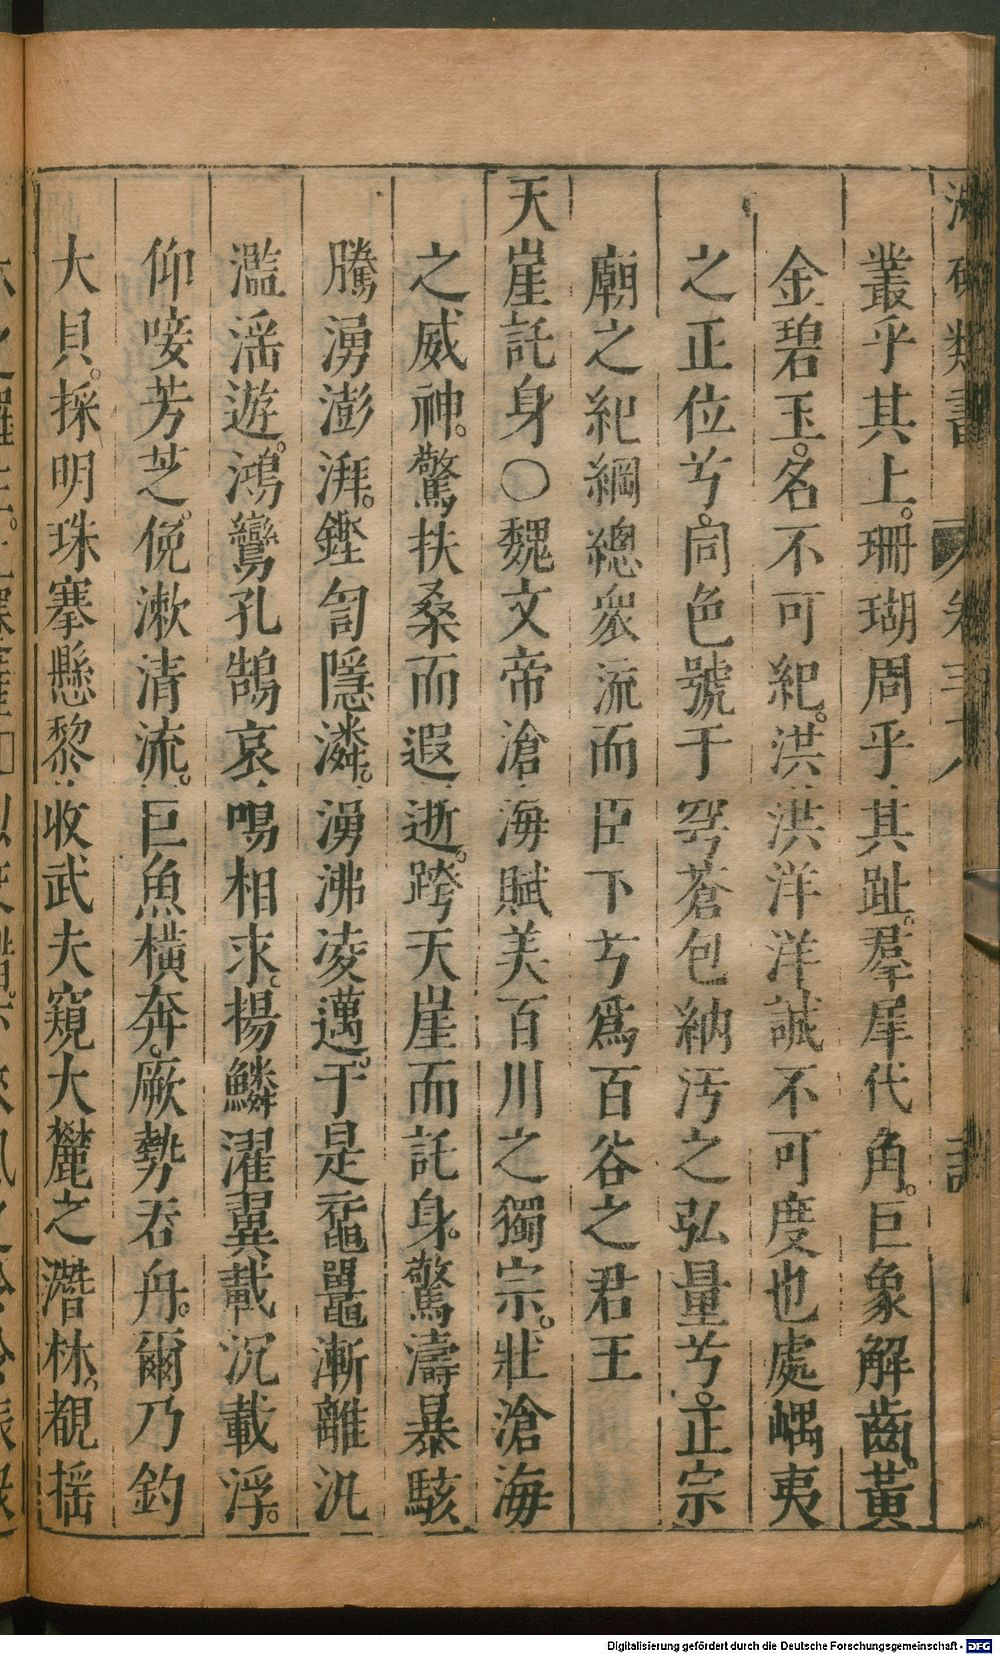 叢乎其上珊瑚周乎其趾羣犀代角巨象解齒黃
金碧玉名不可紀洪洪洋洋誠不可度也處嵎夷
之正位兮同色號于穹蒼包納汚之弘量兮正宗
廟之紀綱總衆流而臣下兮爲百谷之君王
天崖託身○魏文帝滄海賦美百川之獨宗壯滄海
之威神驚扶桑而遐逝跨天崖而託身驚濤暴駭
騰湧澎湃鏗訇隱潾湧沸凌邁于是黿鼉漸離汎
濫淫遊鴻鸞孔鵠哀鳴相求揚鱗濯翼載沉載浮
仰唼芳芝俛漱清流巨魚橫奔厥勢吞舟爾乃釣
大貝採明珠搴懸黎收武夫窺大麓之潛林覩搖
類書
卷三十八
Digitalisierung gefördert durch die Deutsche Forschungsgemeinschaft - DFG